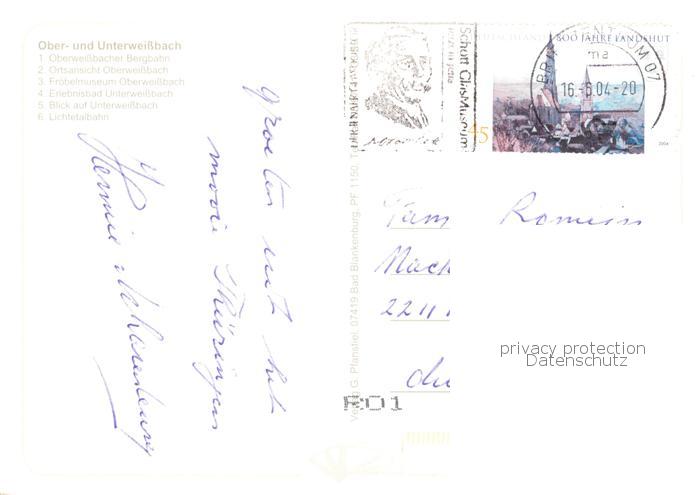 Ober- und Unterweißbach
1. Oberweißbacher Bergbahn
2. Ortsansicht Oberweißbach
3. Fröbelmuseum Oberweißbach
4. Erlebnisbad Unterweißbach
5. Blick auf Unterweißbach
6. Lichtetalbahn
Groeten uit het
mooie Thüringen
Hennie
Verlag G. Pfanstiel, 07419 Bad Blankenburg, PF 1150,
Schott GlasMuseum
800 JAHRE LANDSHUT
BRIEFZENTRUM 07
ma
16.-6.04-20
45
2004
Fam Romijn
2211
privacy protection
Datenschutz